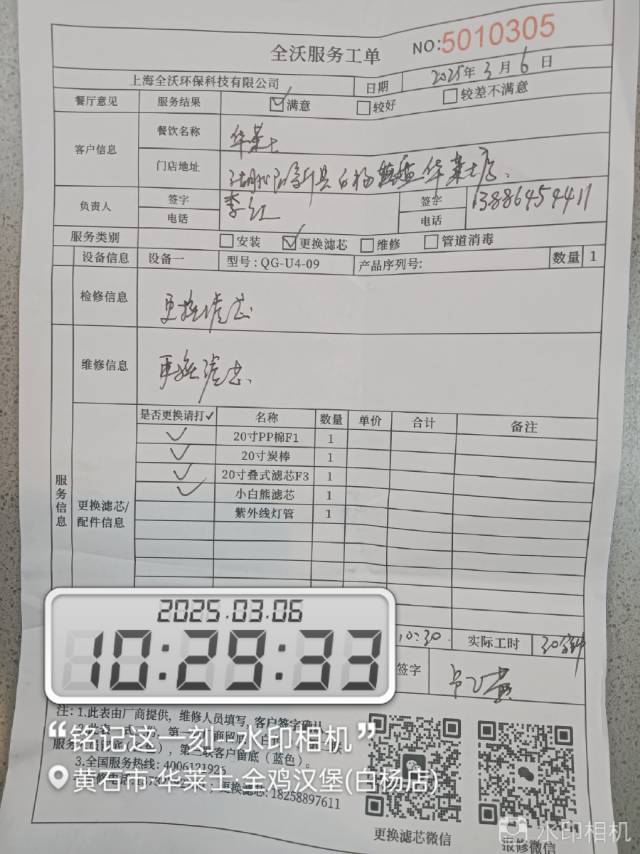 全沃服务工单
NO:5010305
上海全沃环保科技有限公司 日期 2025年3月6日
餐厅意见 服务结果 ☑满意 □较好 □较差不满意
客户信息 餐饮名称 华莱士
门店地址 白杨 华莱士店
负责人 签字 李红 签字 13886459411
电话 电话
服务类别 □安装 ☑更换滤芯 □维修 □管道消毒
设备信息 设备一 型号:QG-U4-09 产品序列号: 数量 1
检修信息 更换滤芯
维修信息 更换滤芯
服务信息
更换滤芯/配件信息
是否更换请打✓ 名称 数量 单价 合计 备注
✓ 20寸PP棉F1 1
✓ 20寸炭棒 1
✓ 20寸叠式滤芯F3 1
✓ 小白熊滤芯 1
紫外线灯管 1
2025.03.06
10:29:33
10:30 实际工时 30分钟
签字
注:1.此表由厂商提供,维修人员填写,客户签字确认
“铭记这一刻|水印相机”
3.全国服务热线:4006121923
黄石市·华莱士·全鸡汉堡(白杨店)
更换滤芯:18258897611
更换滤芯微信 报修微信
水印相机